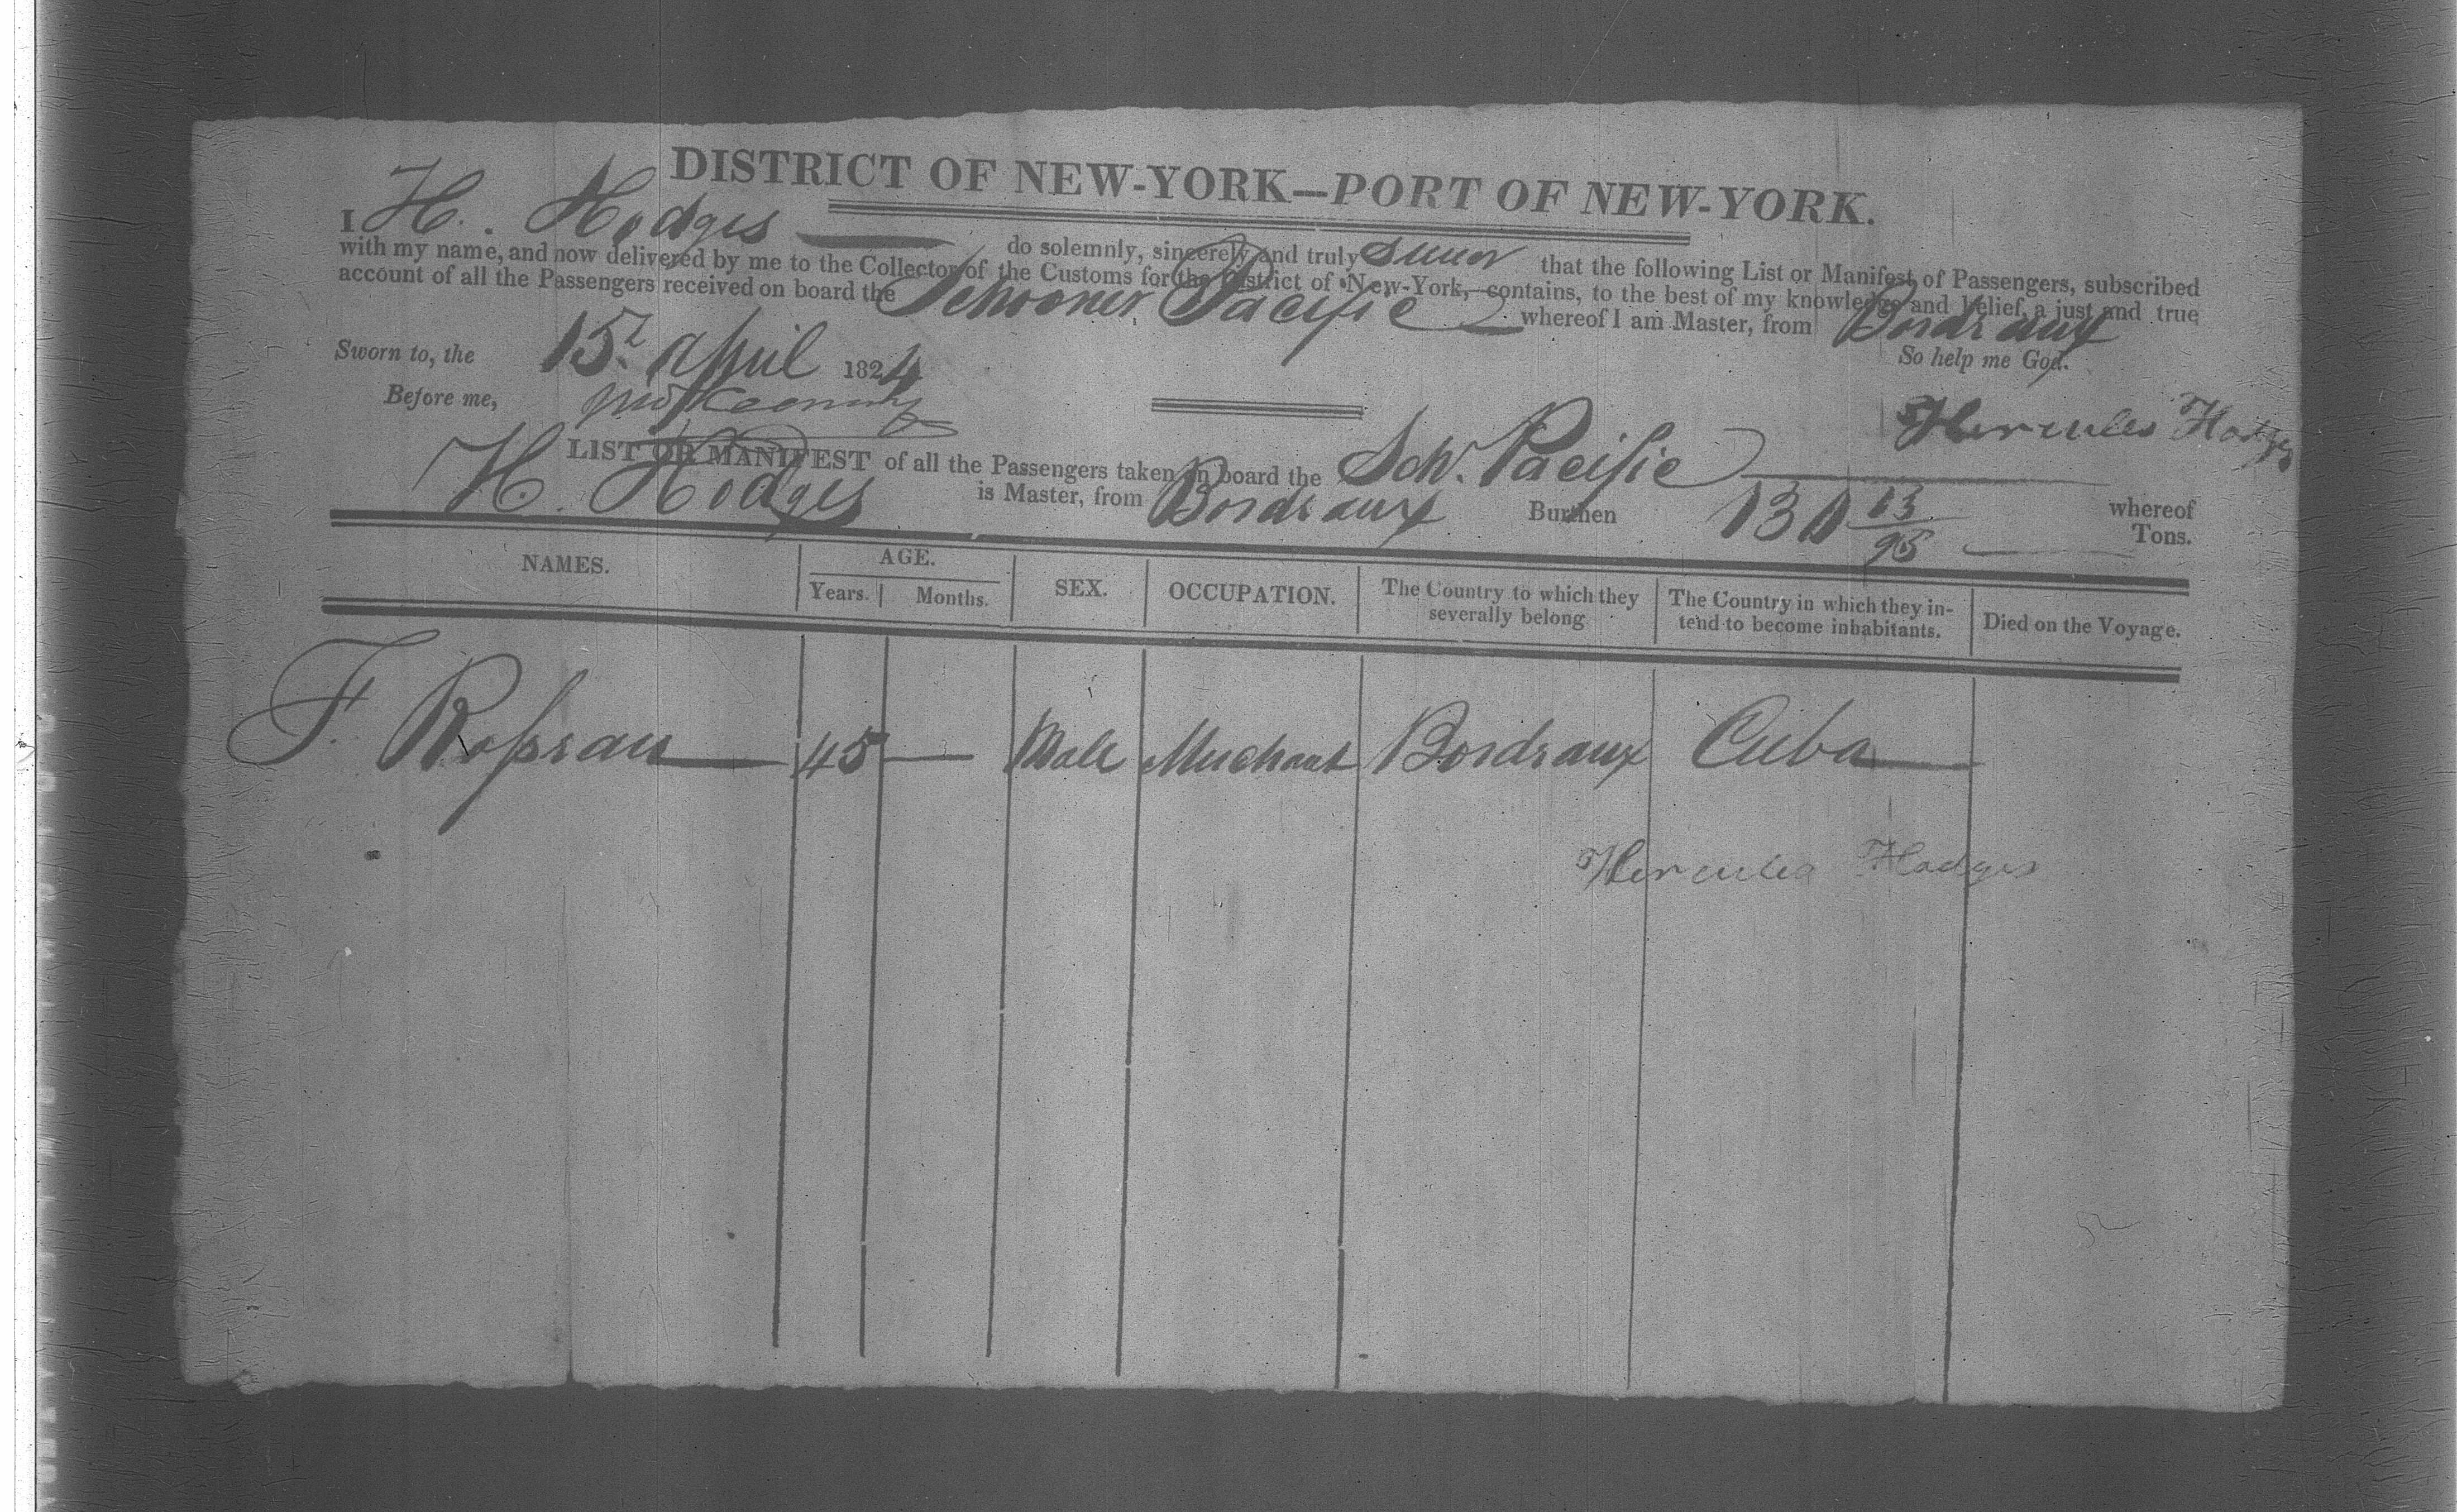 DISTRICT OF NEW-YORK—PORT OF NEW-YORK.
I H. Hodges do solemnly, sincerely and truly swear that the following List or Manifest of Passengers, subscribed
with my name, and now delivered by me to the Collector of the Customs for the District of New-York, contains, to the best of my knowledge and belief, a just and true
account of all the Passengers received on board the Schooner Pacific whereof I am Master, from Bordeaux
Sworn to, the 15th april 1824 So help me God.
Before me,
Hercules Hodges
LIST OR MANIFEST of all the Passengers taken on board the Schr. Pacific whereof
H. Hodges is Master, from Bordeaux Burthen 131 13/95 Tons.
NAMES. AGE. SEX. OCCUPATION. The Country to which they severally belong The Country in which they intend to become inhabitants. Died on the Voyage.
Years. Months.
F. Rosseau 45 — Male Merchant Bordeaux Cuba
Hercules Hodges